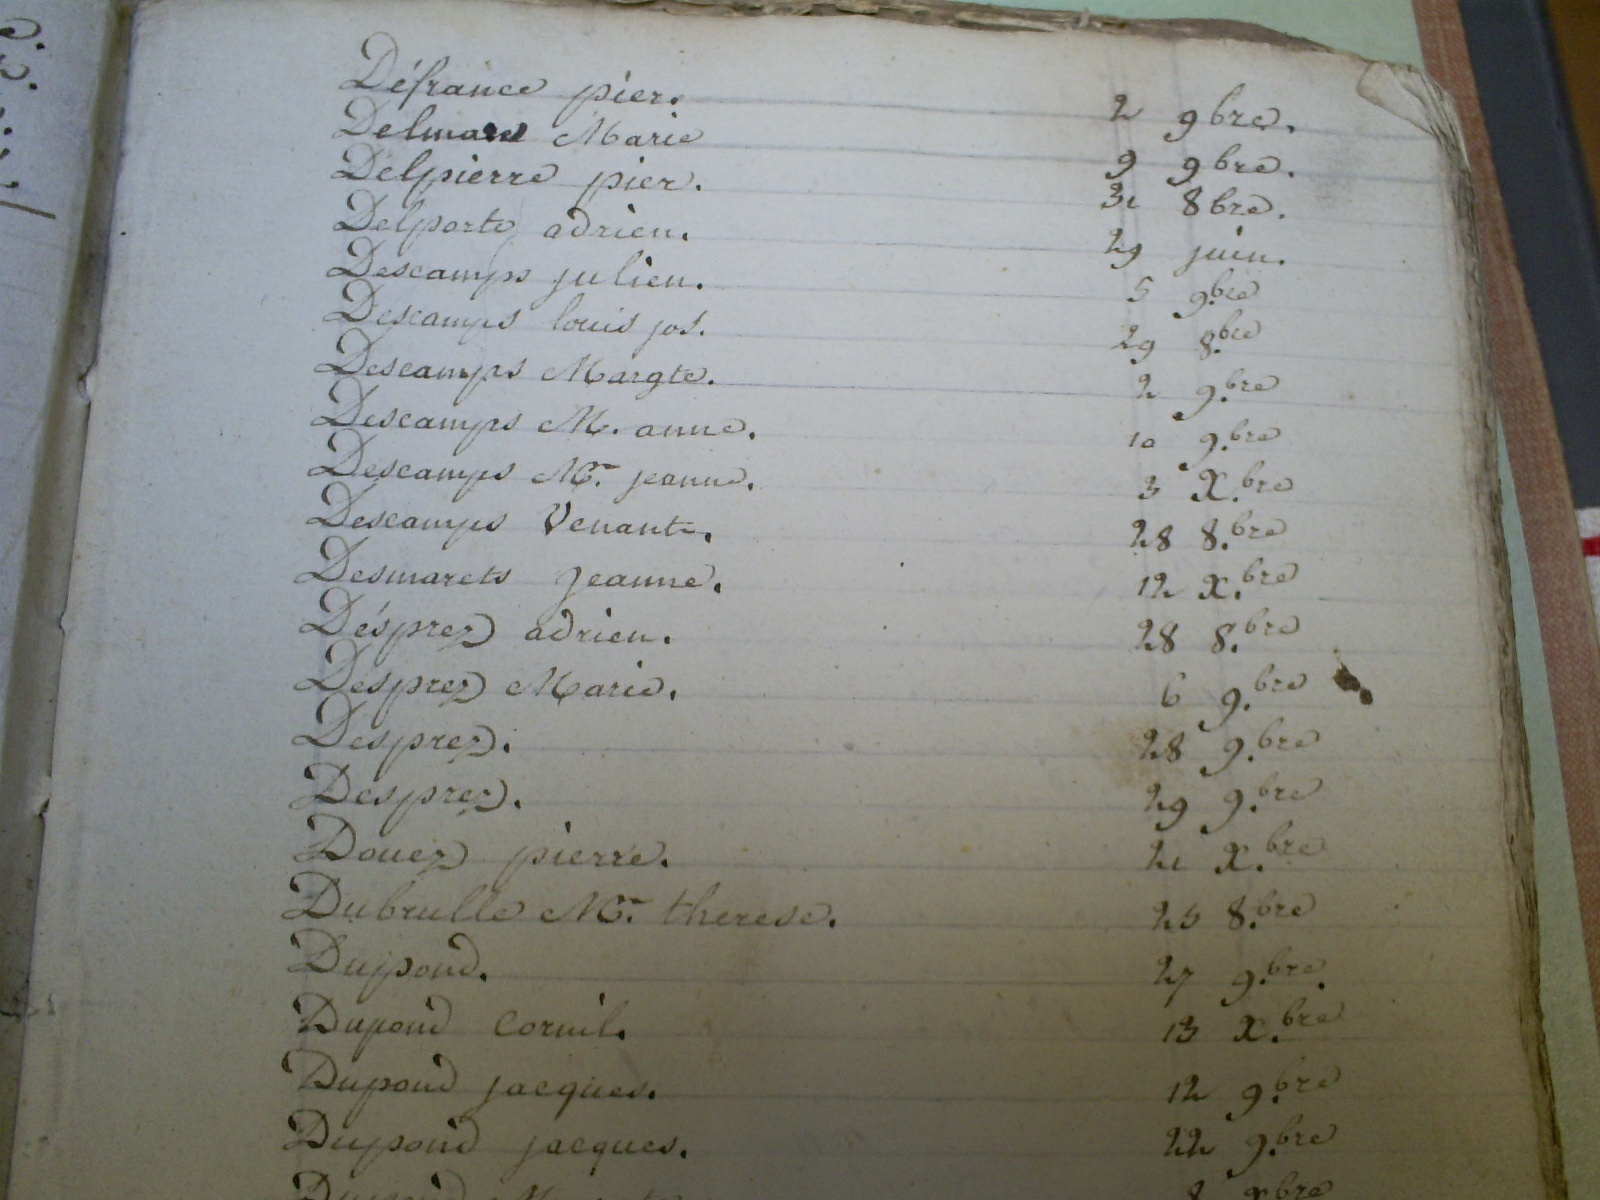 Défrance pier. 2 9bre.
Delmare Marie 9 9bre.
Delpierre pier. 31 8bre.
Delporte adrien. 29 juin.
Descamps julien. 5 9.bre
Descamps louis jos. 29 8.bre
Descamps Margte. 2 9.bre
Descamps M. anne. 10 9.bre
Descamps Mr. jeanne. 3 X.bre
Descamps Venant. 28 8.bre
Desmarets Jeanne. 12 X.bre
Désprez adrien. 28 8.bre
Desprez Marie. 6 9.bre
Desprez. 28 9.bre
Desprez. 29 9.bre
Douez pierre. 21 X.bre
Dubrulle Mr. therese. 25 8.bre
Dupond. 27 9.bre.
Dupond Cornil. 13 X.bre
Dupond jacques. 12 9.bre
Dupond jacques. 22 9.bre